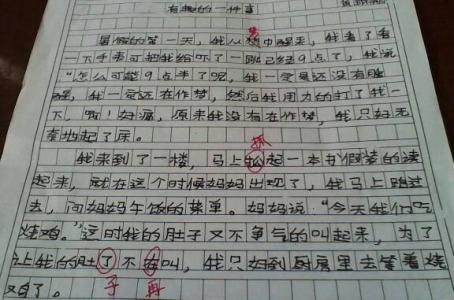 有趣的一件事
暑假的第一天，我从梦中醒来，我看了看
一下手表可把我给吓了一跳已经9点了，我说
“怎么可能9点半了呢，我一定是还没有睡
醒，我一定还在作梦，然后我用力的打了我一
下，啊！好痛，原来我没有在作梦，我只好无
奈地起了床。
抓
我来到了一楼，马上松起一本书假装的读
起来，就在这个时候妈妈出现了，我马上跑过
去，问妈妈午饭的菜单。妈妈说：“今天我们吃
烧鸡。”这时我的肚子又不争气的叫起来，为了
让我的肚了不在叫，我只好到厨房里去等着烧
鸡了。
子 再